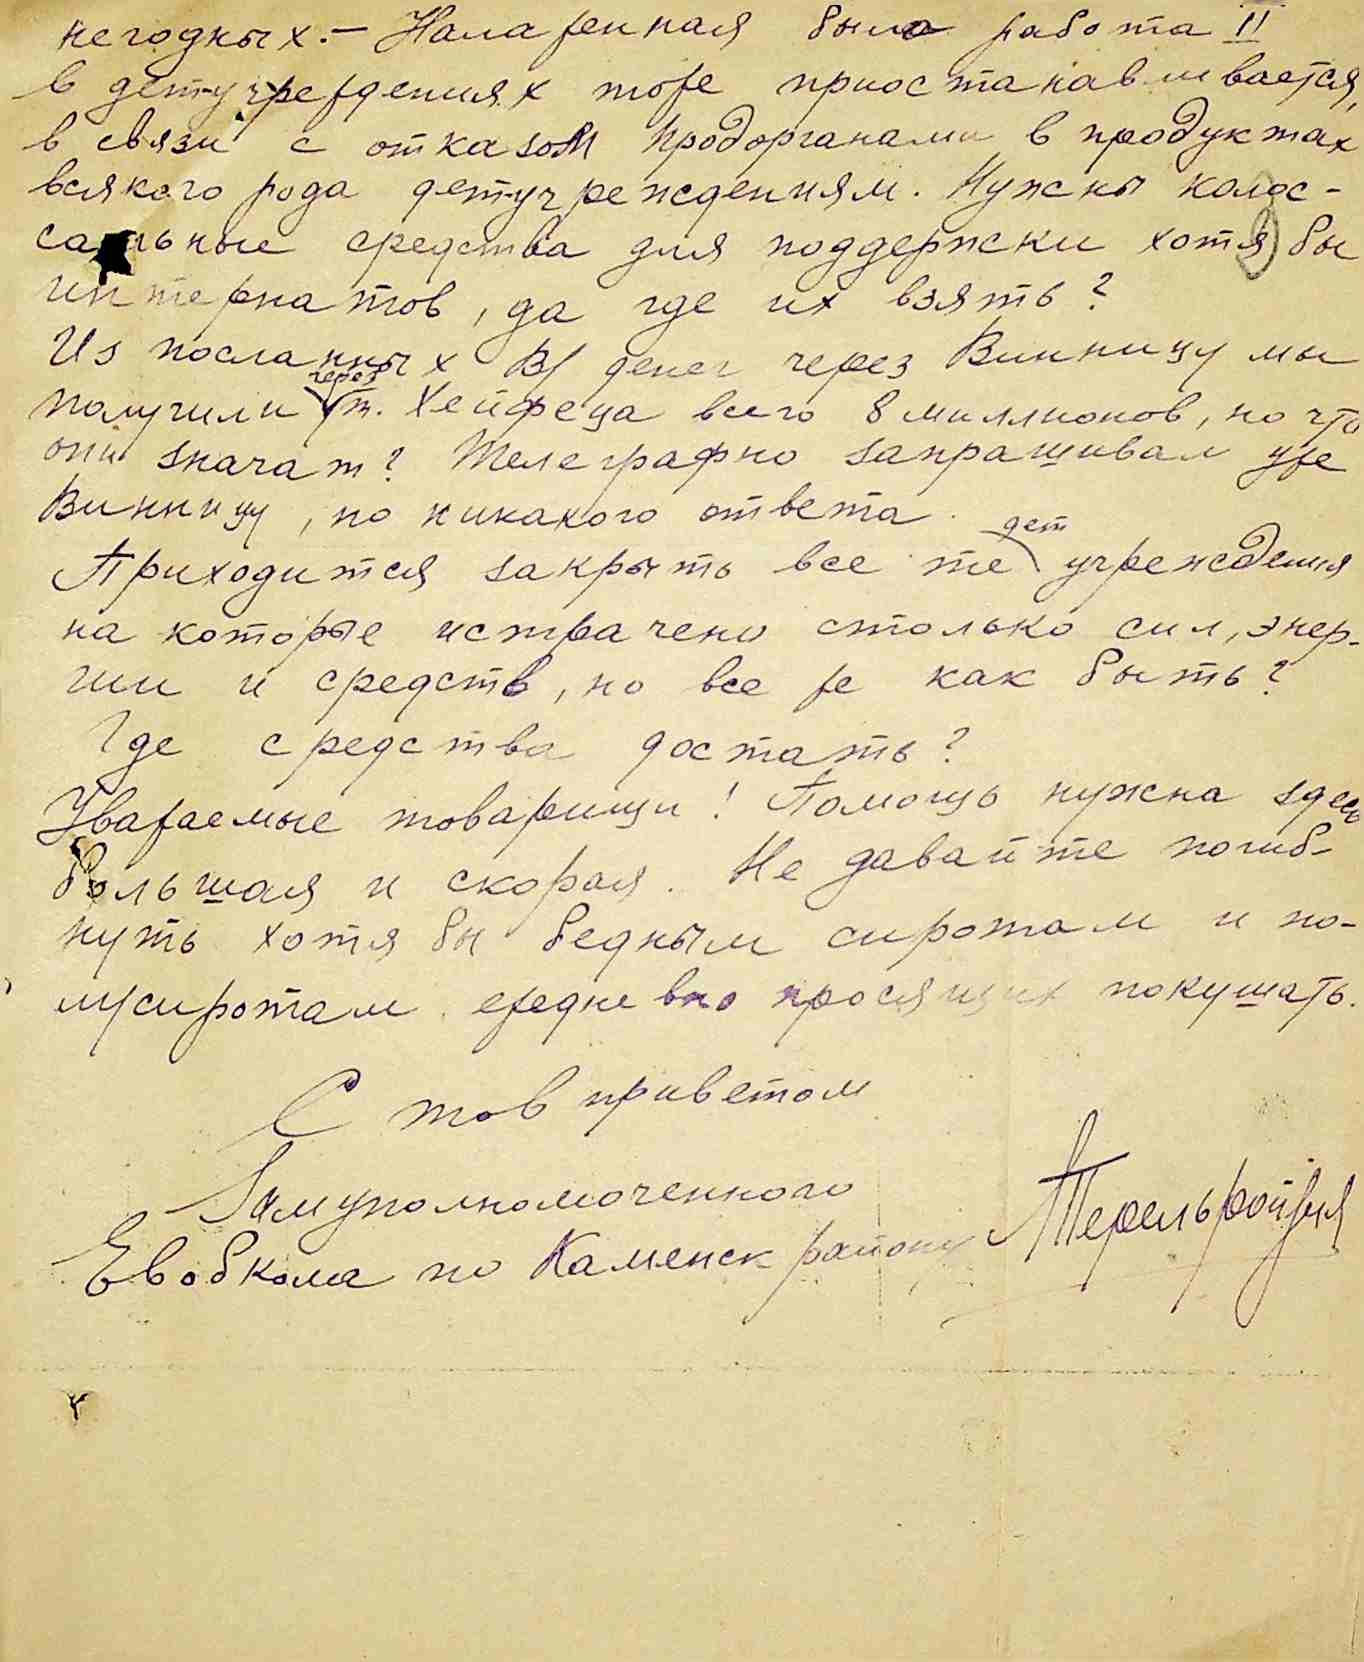 негодных. – Налаженная была работа II
в детучреждениях тоже приостанавливается,
в связи с отказом продорганами в продуктах
всякого рода детучреждениям. Нужны колос-
сальные средства для поддержки хотя бы
интернатов, да где их взять?
Из посланных В/ денег через Винницу мы
получили через т. Хейфеца всего 8 миллионов, но что
они значат? Телеграфно запрашивал уже
Винницу, но никакого ответа.
Приходится закрыть все те дет учреждения
на которые истрачено столько сил, энер-
гии и средств, но все же как быть?
Где средства достать?
Уважаемые товарищи! Помощь нужна здесь
большая и скорая. Не давайте погиб-
нуть хотя бы бедным сиротам и по-
лусиротам ежедневно просящих покушать.
С тов приветом
Замуполномоченного
Евобкома по Каменск району